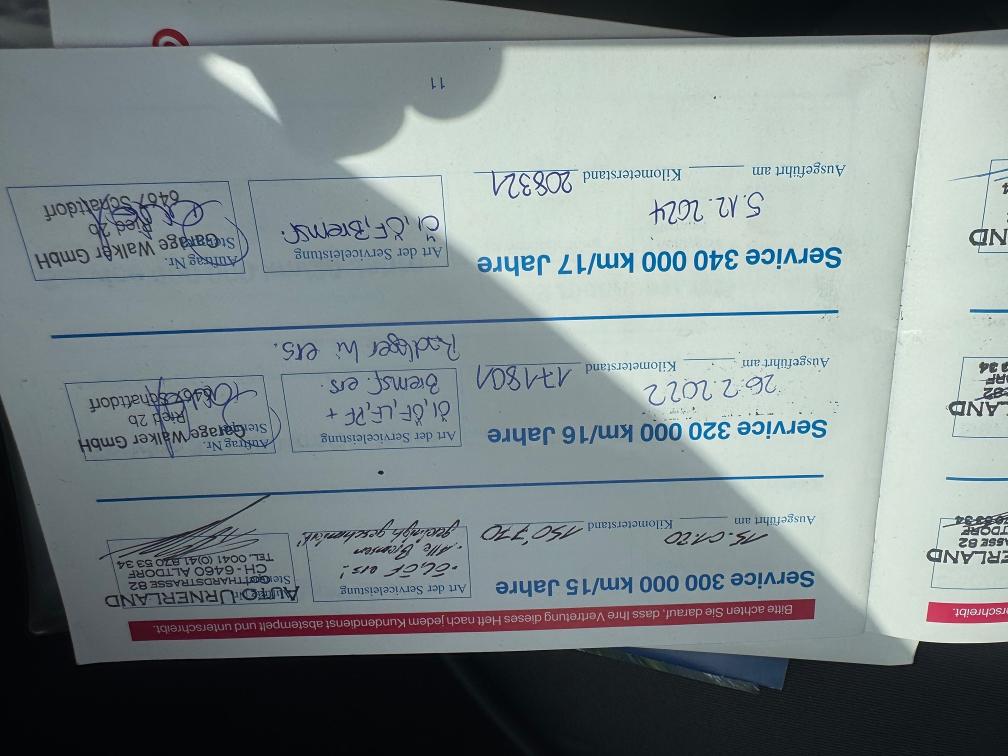 Bitte achten Sie darauf, dass Ihre Vertretung dieses Heft nach jedem Kundendienst abstempelt und unterschreibt.
Service 300 000 km/15 Jahre
Ausgeführt am Kilometerstand 150'770
Art der Serviceleistung
ÖL, ÖF ers!
Alle Bremsen
AUTO URNERLAND
GOTTHARDSTRASSE 82
CH - 6460 ALTDORF
TEL. 0041 (0)41 870 53 34
Service 320 000 km/16 Jahre
26.2.2022
Ausgeführt am Kilometerstand 171801
Art der Serviceleistung
Öl, ÖF, LF, PF +
Bremsf. ers.
Radlager hi ers.
Auftrag Nr.
Garage Walker GmbH
Ried 2b
6467 Schattdorf
Service 340 000 km/17 Jahre
5.12.2024
Ausgeführt am Kilometerstand 208321
Art der Serviceleistung
Öl, ÖF, Bremsf.
Auftrag Nr.
Garage Walker GmbH
Ried 2b
6467 Schattdorf
11
rschreibt.
ERLAND
ASSE 82
TDORF
LAND
ND